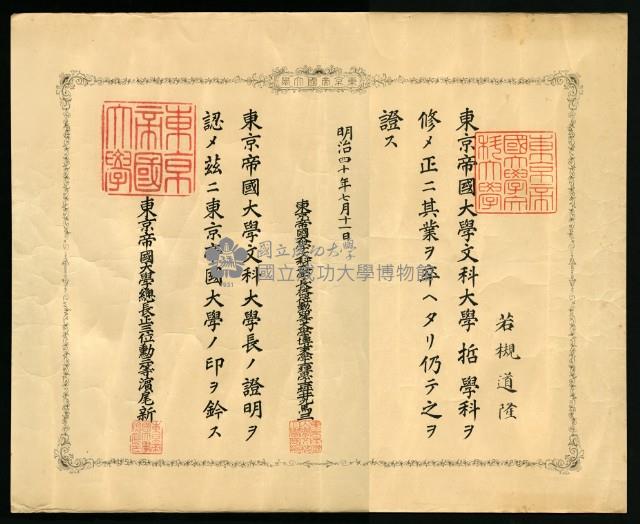 東京帝國大學
若槻道隆
東京帝國大學文科大學哲學科ヲ
修メ正ニ其業ヲ卒ヘタリ仍テ之ヲ
證ス
明治四十年七月十一日
東京帝國大學文科大學長ノ證明ヲ
認メ茲ニ東京帝國大學ノ印ヲ鈐ス
東京帝國大學總長正三位勳二等濱尾新
東京帝國大學文科大學
東京帝國大學
國立成功大學
國立成功大學博物館
1931